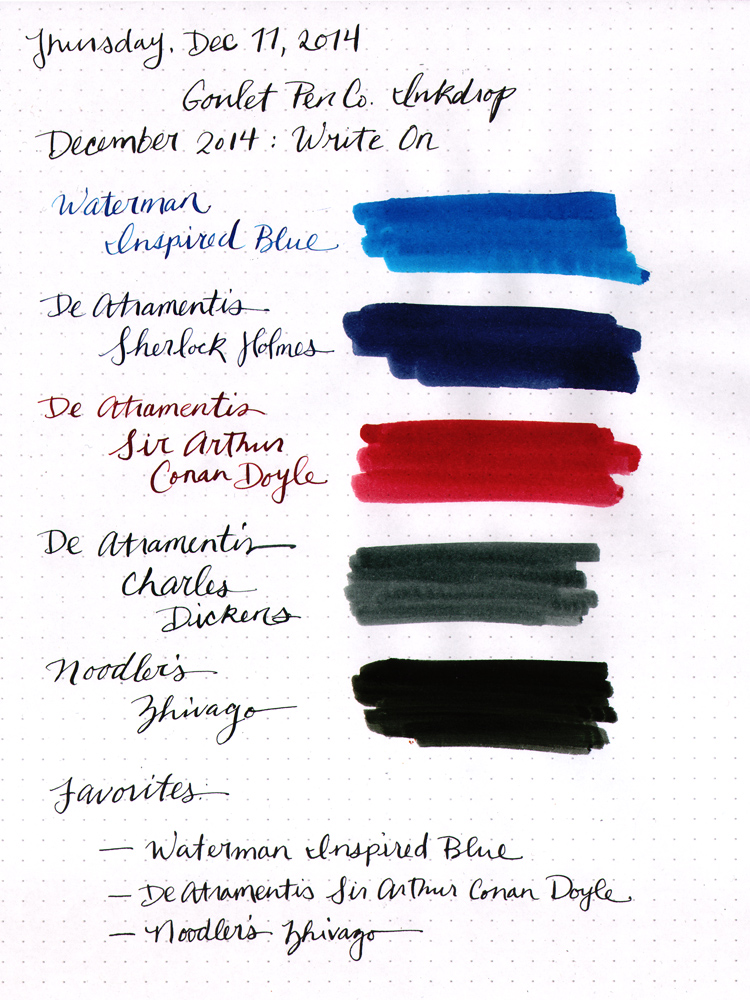 Thursday, Dec 11, 2014
Goulet Pen Co. Inkdrop
December 2014 : Write On
Waterman
Inspired Blue
De Atramentis
Sherlock Holmes
De Atramentis
Sir Arthur
Conan Doyle
De Atramentis
Charles
Dickens
Noodler's
Zhivago
Favorites
— Waterman Inspired Blue
— De Atramentis Sir Arthur Conan Doyle
— Noodler's Zhivago